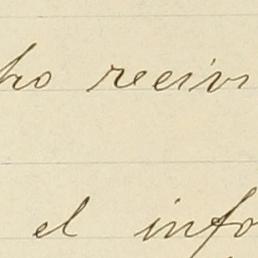 ho recivi
el info